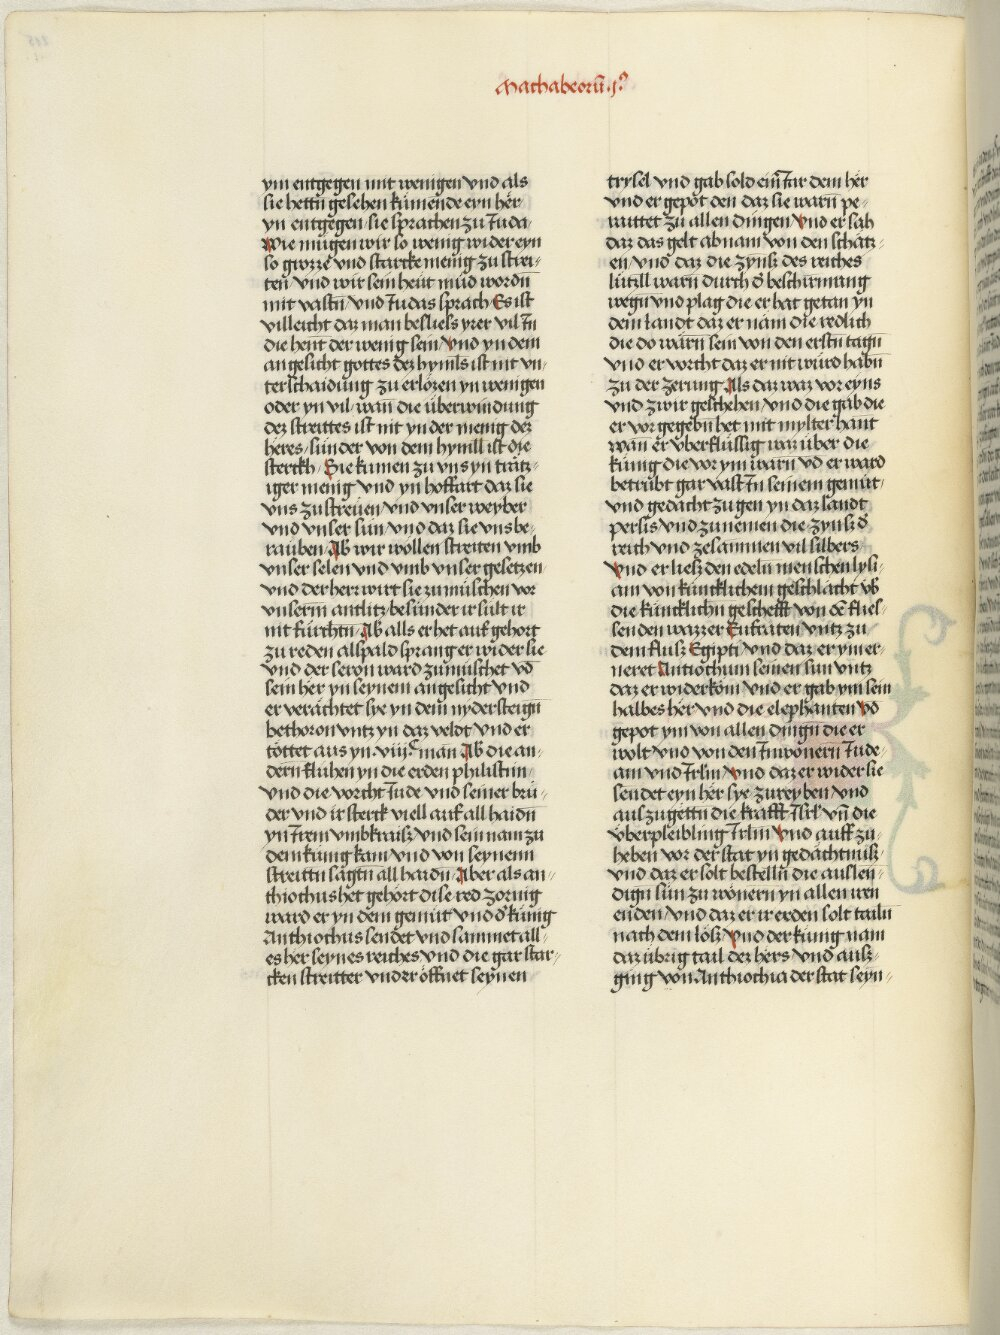 Machabeorū ·j·⁹
ym entgegen mit wenigen vnd als
sie hettn̄ gesehen kumende eyn hër
yn entgegen sie sprachen zu Juda
Wie mugen wir so wenig wider eyn
so grozze vnd starcke menig zu strei⸗
ten vnd wir sein hewt müd wordn̄
mit vastn̄ vnd Judas sprach Es ist
villeicht daz man besliess yrer vil Jn
die hent der wenig sein Vnd yn dem
angesicht gottes dez hymls ist nit vn⸗
terschaidung zu erlozen yn wenigen
oder yn vil wan die überwindung
dez streittes ist nit yn der menig dez
heres sunder von dem hymll ist die
sterckh Sie kumen zu vns yn trätz⸗
iger menig vnd yn hoffart daz sie
vns zustreuen vnd vnser weyber
vnd vnser sun vnd daz sie vns be⸗
rauben Ab wir wollen streiten vmb
vnser selen vnd vmb vnser gesetzen
vnd der herr wirt sie zumischen vor
vnserm̄ antlitz besunder ir sült ir
nit fürchtn̄ Ab alls er het auf gehort
zu reden allspald sprang er wider sie
vnd der seron ward zumischet vō
sein her yn seynem angesicht vnd
er verächtet sye yn dem nydersteign̄
bethoron vntz yn daz veldt vnd er
töttet aus yn viijᶜ man Ab die an⸗
dern fluhen yn die erden philistim
vnd die vorcht Jude vnd seiner brü⸗
der vnd ir sterck viell auf all haidn̄
yn Jrem vmbkraisz vnd sein nam zu
dem kunig kam vnd von seynenn
streittn̄ sagtn̄ all haidn̄ Aber als an⸗
thiochus het gehört dise red zornig
ward er yn dem gemüt vnd d' künig
Anthiochus sendet vnd sammet all⸗
es her seynes reiches vnd die gar star⸗
cken streitter vnd er öffnet seynen
trysel vnd gab sold eim̄ Jar dem hër
vnd er gepöt den daz sie warn̄ pe⸗
raittet zu allen dingen Vnd er sah
daz das gelt abnam von den schätz⸗
en vnd daz die zynsz des reiches
lützll warn̄ durch d' beschirmung
wegn̄ vnd plag die er hat getan yn
dem landt daz er näm die redlich
die do wärn sein von den erstn̄ tagn̄
vnd er vorcht daz er nit würd habn̄
zu der zerung Als daz waz vor eyns
vnd zwir geschehen vnd die gab die
er vor gegebn̄ het mit mylter hant
wan er vberflüssig waz über die
künig die vor ym warn̄ vd er ward
betrübt gar vast Jn seinem gemüt⸗
vnd gedacht zu gen yn daz landt
persis vnd zunemen die zynsz d'
reich vnd zesammen vil silbers
Vnd er liesz den edeln menschen lysi⸗
am von künicklichem geschlächt vb'
die künicklichn̄ geschefft von dē flies⸗
senden wazzer Eufraten vntz zu
dem flusz Egipti vnd daz er ym er⸗
neret Antiochum seinen sun vntz
daz er widerköm vnd er gab ym sein
halbes her vnd die elephanten Vō
gepot ym von allen dingn̄ die er
wolt vnd von den Jnwonern Jude⸗
am vnd Jrlm̄ Vnd daz er wider sie
sendet eyn hër sye zureyben vnd
auszugettn̄ die krafft Jsrl' vn̄ die
vberpleibling Jrlm̄ Vnd auff zu⸗
heben vor der stat yn gedächtnüsz
vnd daz er solt bestelln̄ die auslen⸗
dign̄ sün zu wönern yn allen iren
enden vnd daz er ir erden solt tailn̄
nach dem lösz Vnd der künig nam
daz übrig tail dez hers vnd ausz⸗
ging von Anthiochia der stat seyn⸗